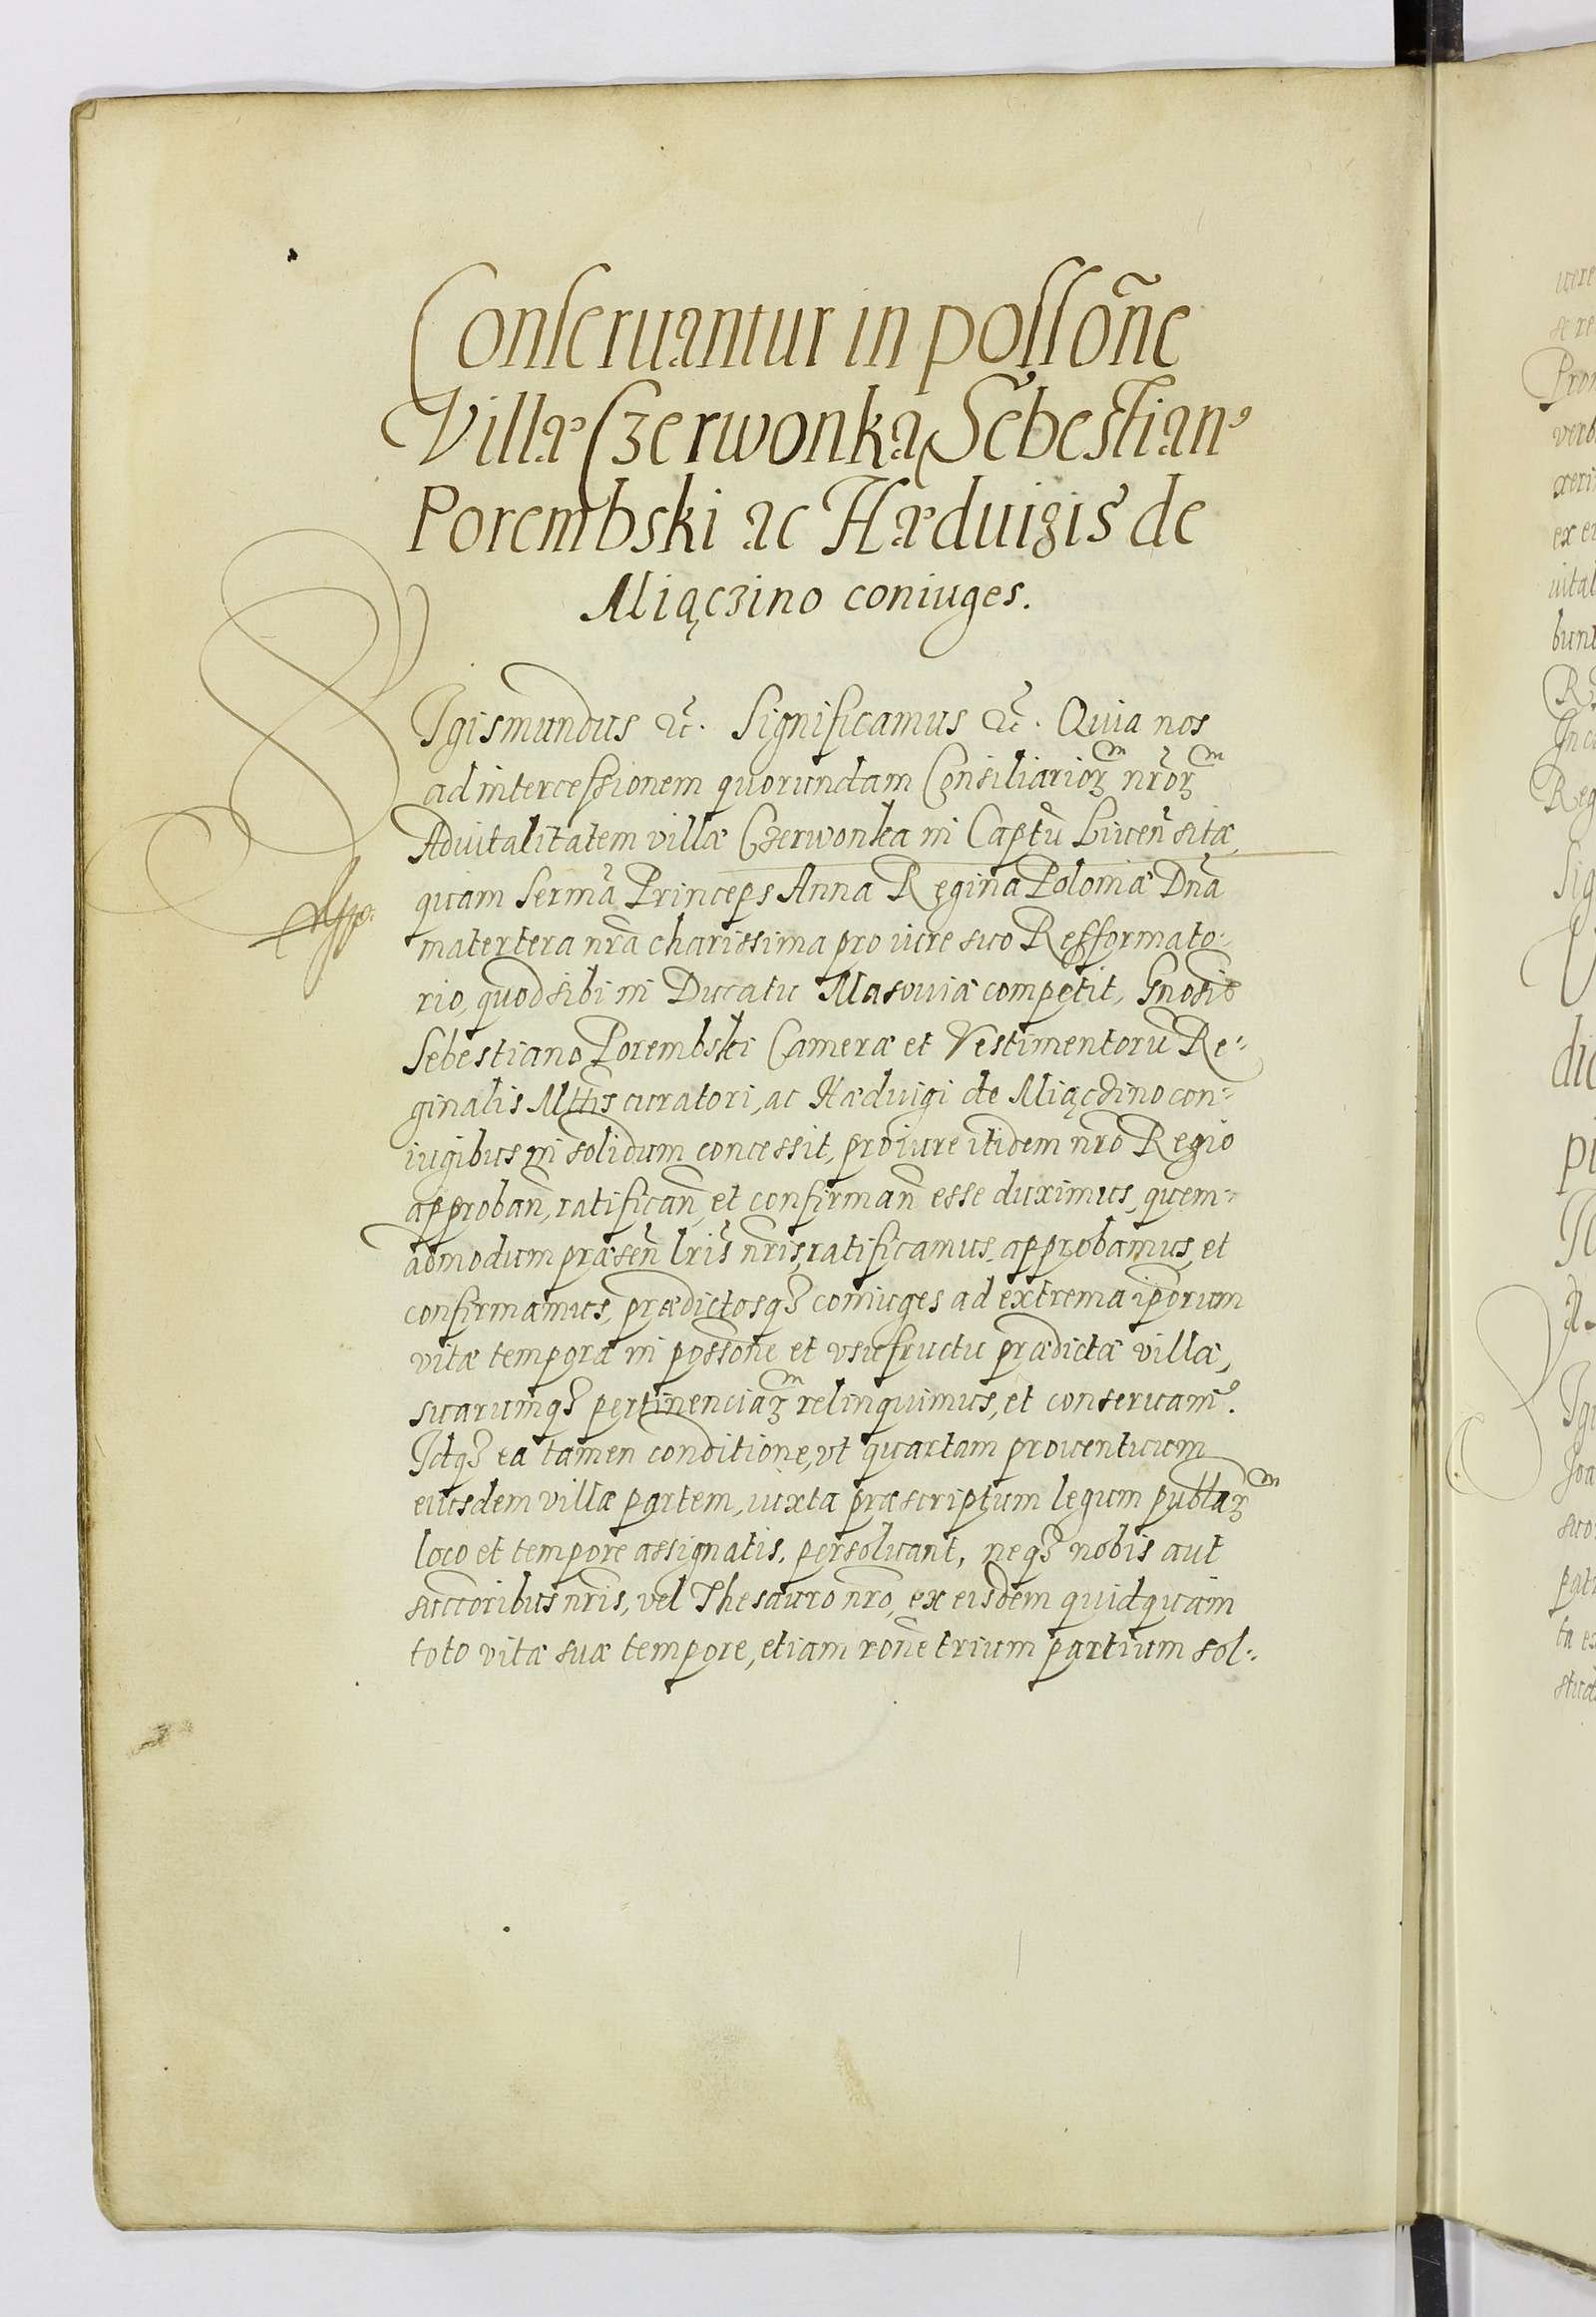 Conseruantur in possõne
Villæ Czerwonka Sebestian9
Porembski ac Hæduigis de
Miączino coniuges.
SIgismundus etc. Significamus etc. Quia nos
ad intercessionem quorundam Consiliarioꝝ nr̃oꝝ
Aduitalitatem villæ Czerwonka in Captũ Liuceñ sitæ,
quam Serm̃a Princeps Anna Regina Poloniæ Dña
matertera nr̃a charissima pro iure suo Refformato-
rio, quod sibi in Ducatu Masouiæ competit, Gnosis
Sebestiano Porembski Cameræ et Vestimentorũ Re-
ginalis Mttis curatori, ac Hæduigi de Miączino con-
iugibus in solidum concessit, pro iure itidem nr̃o Regio
approbañ, ratificañ, et confirmañ esse duximus, quem-
admodum præseñ lr̃is nr̃is, ratificamus, approbamus, et
confirmamus, prædictosqꝫ coniuges ad extrema ip̃orum
vitæ tempora in possõne et vsufructu prædictæ villæ,
suarumqꝫ pertinenciaꝝ relinquimus, et conseruam9.
Idqꝫ ea tamen conditione, vt quartam prouentuum
eiusdem villæ partem, iuxta præscriptum legum publaꝝ
loco et tempore assignatis, persoluant, neqꝫ nobis aut
succoribus nr̃is, vel Thesauro nr̃o, ex eisdem quidquam
toto vitæ suæ tempore, etiam rõne trium partium sol-